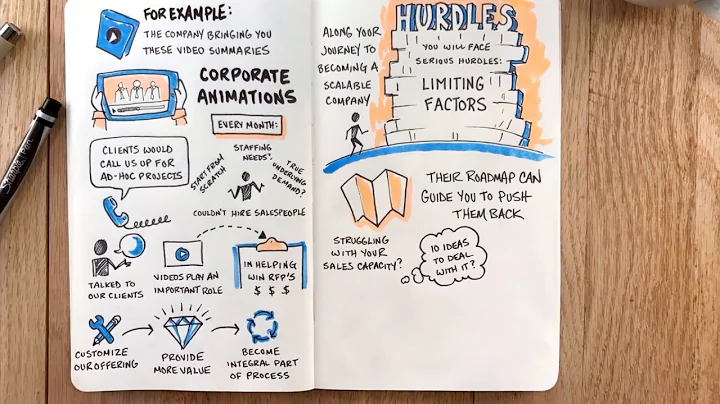 FOR EXAMPLE:
THE COMPANY BRINGING YOU
THESE VIDEO SUMMARIES
CORPORATE
ANIMATIONS
EVERY MONTH:
CLIENTS WOULD
CALL US UP FOR
AD-HOC PROJECTS
START FROM
SCRATCH
STAFFING
NEEDS?
TRUE
UNDERLYING
DEMAND?
COULDN'T HIRE SALESPEOPLE
TALKED TO
OUR CLIENTS
VIDEOS PLAY AN
IMPORTANT ROLE
IN HELPING
WIN RFP'S
$ $ $
CUSTOMIZE
OUR OFFERING
PROVIDE
MORE VALUE
BECOME
INTEGRAL PART
OF PROCESS
HURDLES
ALONG YOUR
JOURNEY TO
BECOMING A
SCALABLE
COMPANY
YOU WILL FACE
SERIOUS HURDLES:
LIMITING
FACTORS
THEIR ROADMAP CAN
GUIDE YOU TO PUSH
THEM BACK
STRUGGLING
WITH YOUR
SALES CAPACITY?
10 IDEAS
TO DEAL
WITH IT?